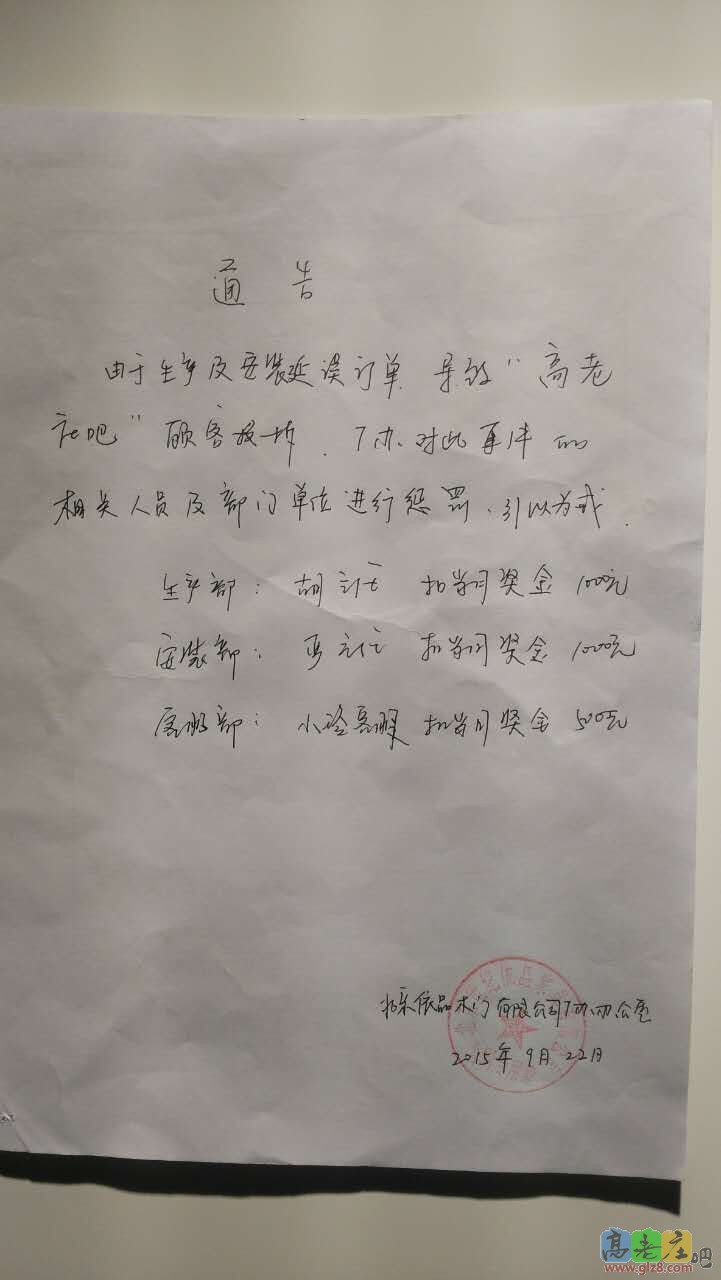 通告
由于生产及安装延误订单 导致“高老
庄吧”顾客投诉.厂办对此事件的
相关人员及部门单位进行惩罚、引以为戒.
生产部: 胡主任 扣当月奖金 100元
安装部: 主任 扣当月奖金 1000元
客服部: 小 扣当月奖金 500元
依品木门有限公司厂办办公室
2015年9月22日
高老庄吧
www.glz8.com